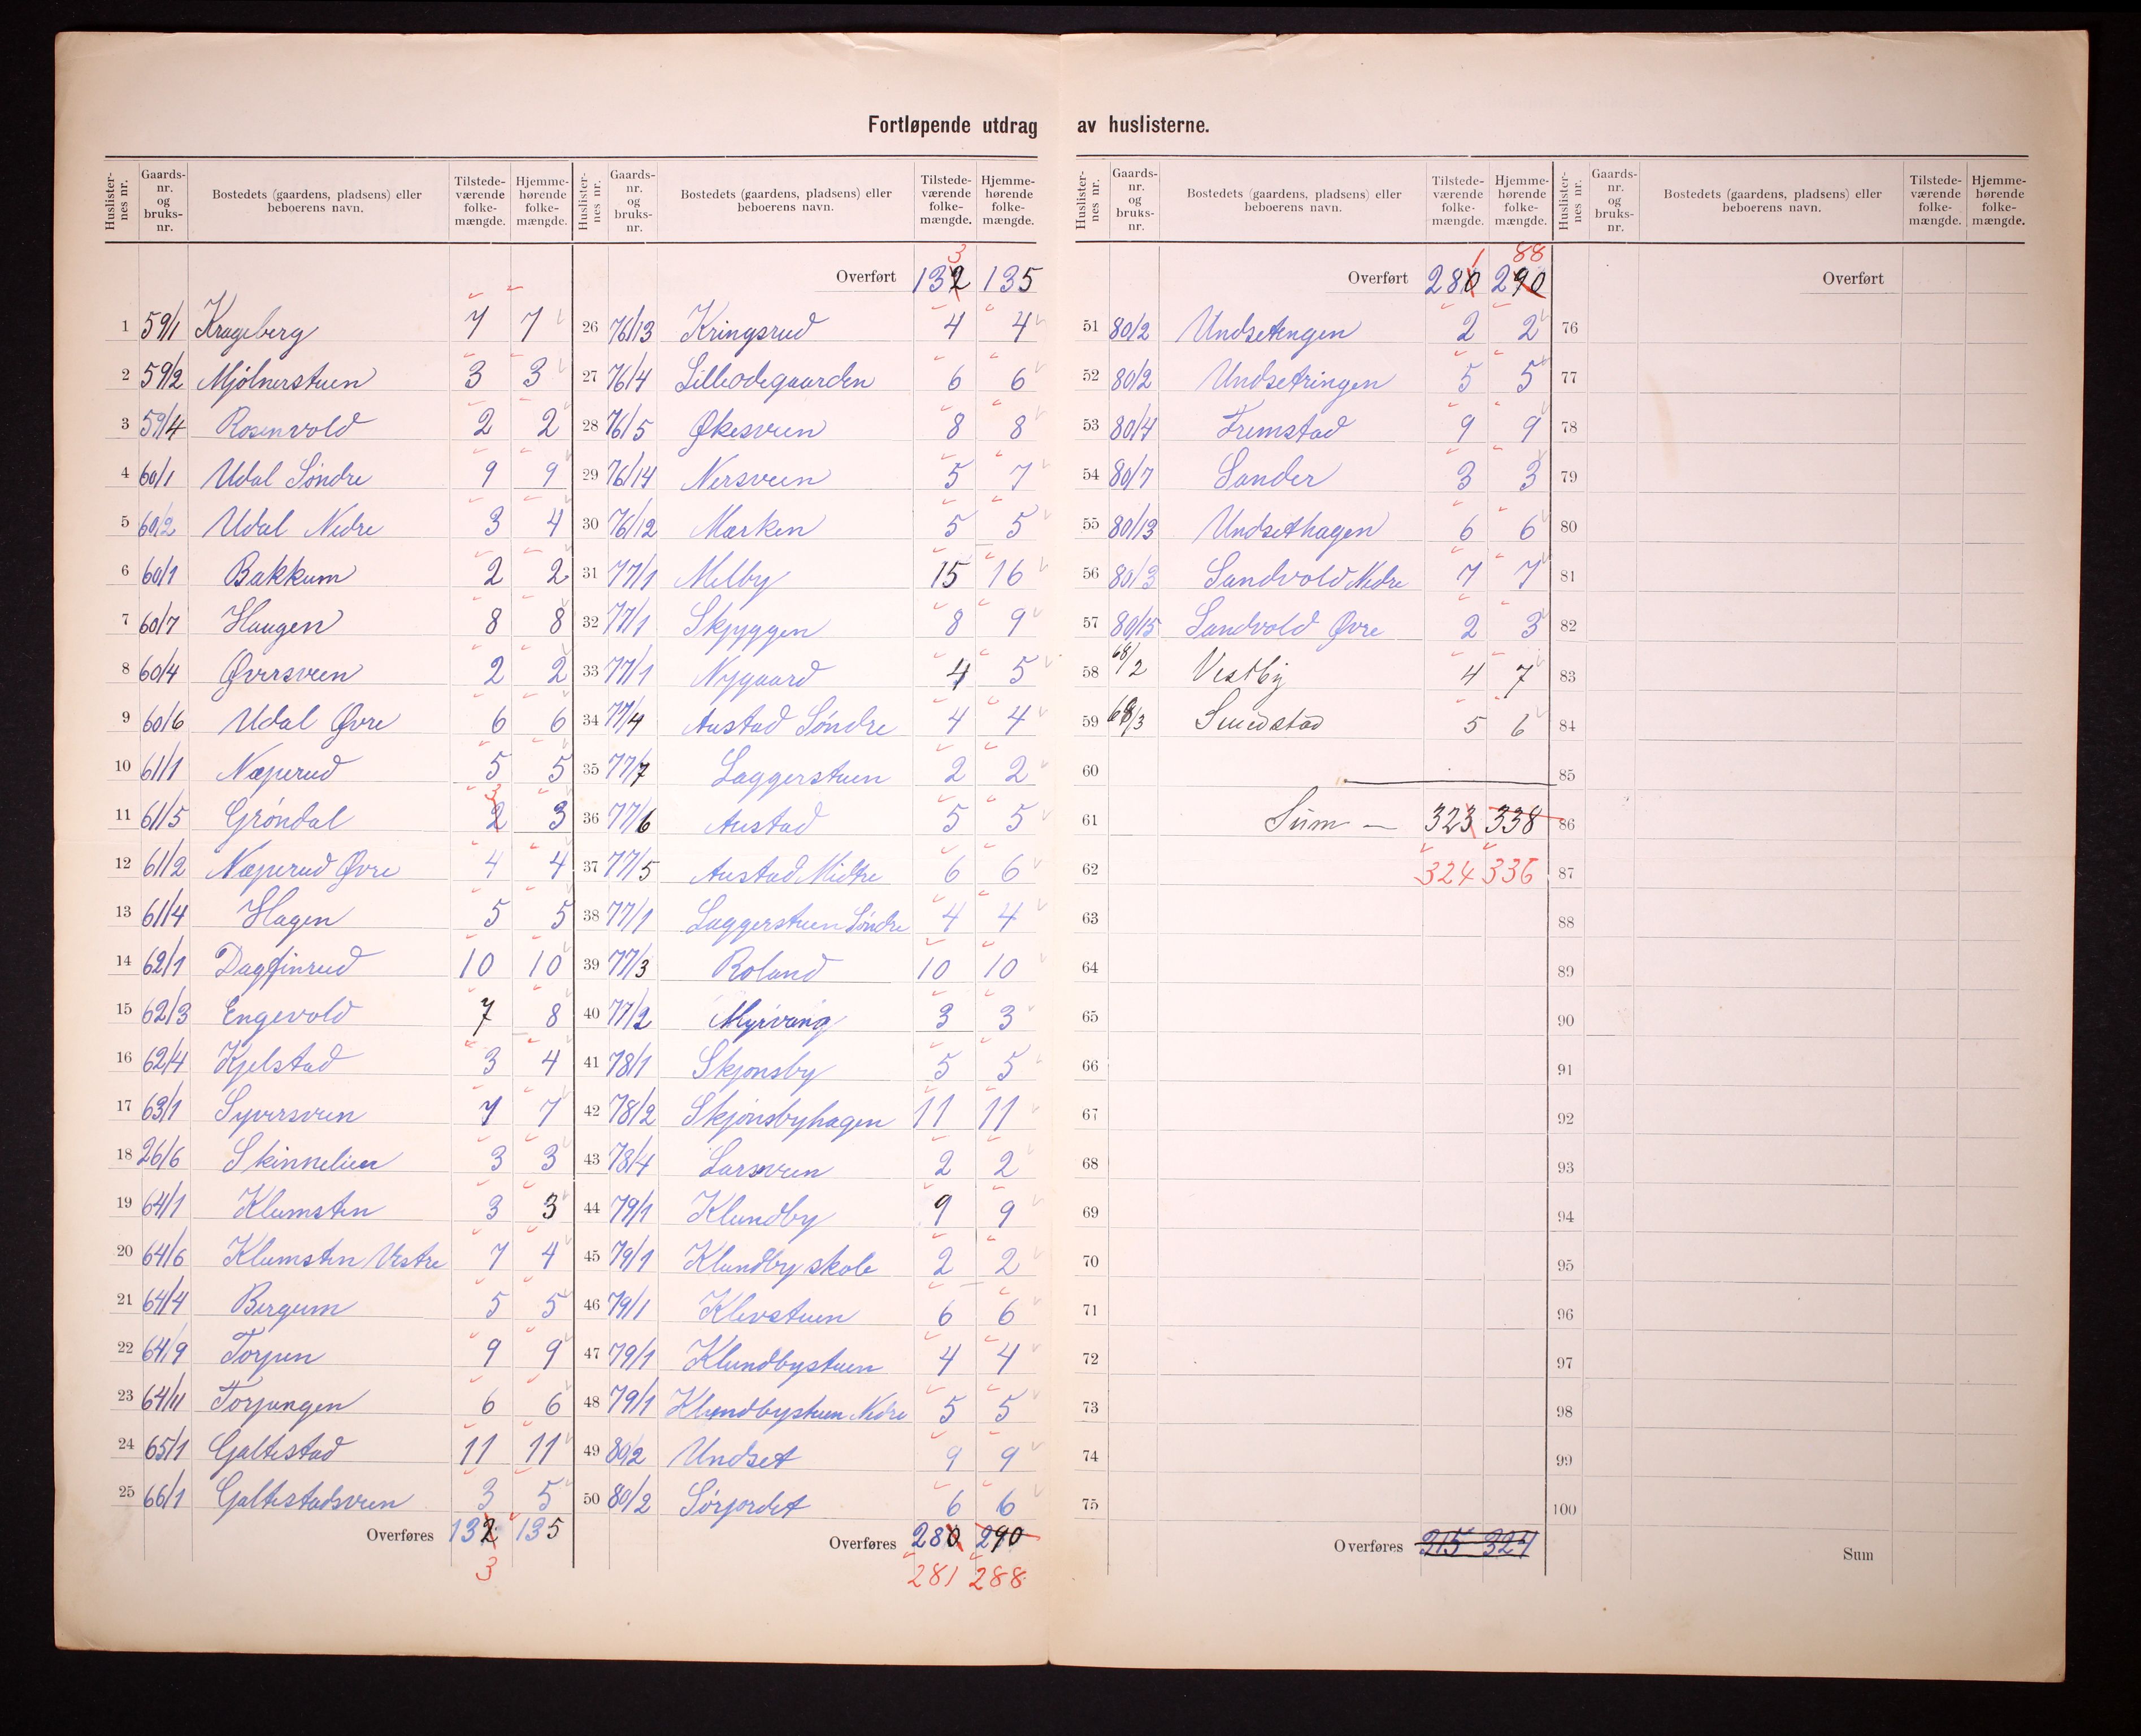 Fortløpende utdrag av huslisterne.
Huslisternes nr. Gaards-nr. og bruks-nr. Bostedets (gaardens, pladsens) eller beboerens navn. Tilstedeværende folkemængde. Hjemmehørende folkemængde.
1 59/1 Krageberg 7 7
2 59/2 Mjölnerstuen 3 3
3 59/4 Rosenvold 2 2
4 60/1 Udal Söndre 9 9
5 60/2 Udal Nedre 3 4
6 60/1 Bakkum 2 2
7 60/7 Haugen 8 8
8 60/4 Øversveen 2 2
9 60/6 Udal Øvre 6 6
10 61/1 Næperud 5 5
11 61/5 Gröndal 2 3 3
12 61/2 Næperud Øvre 4 4
13 61/4 Hagen 5 5
14 62/1 Dagfinrud 10 10
15 62/3 Engevold 7 8
16 62/4 Kjelstad 3 4
17 63/1 Syversveen 7 7
18 26/6 Skinnelien 3 3
19 64/1 Klumsten 3 3
20 64/6 Klumsten Vestre 7 4
21 64/4 Bergum 5 5
22 64/9 Torpen 9 9
23 64/11 Torpengen 6 6
24 65/1 Galtestad 11 11
25 66/1 Galtestadsveen 3 5
Overføres 132 135
3
Huslisternes nr. Gaards-nr. og bruks-nr. Bostedets (gaardens, pladsens) eller beboerens navn. Tilstedeværende folkemængde. Hjemmehørende folkemængde.
3
Overført 132 135
26 76/13 Kringsrud 4 4
27 76/4 Lilleødegaarden 6 6
28 76/5 Økesveen 8 8
29 76/14 Nersveen 5 7
30 76/12 Marken 5 5
31 77/1 Melby 15 16
32 77/1 Skjyggen 8 9
33 77/1 Nygaard 4 5
34 77/4 Austad Söndre 4 4
35 77/7 Laggerstuen 2 2
36 77/6 Austad 5 5
37 77/5 Austad Midtre 6 6
38 77/1 Laggerstuen Söndre 4 4
39 77/3 Roland 10 10
40 77/2 Myrvang 3 3
41 78/1 Skjonsby 5 5
42 78/2 Skjönsbyhagen 11 11
43 78/4 Larsveen 2 2
44 79/1 Klundby 9 9
45 79/1 Klundby skole 2 2
46 79/1 Klevstuen 6 6
47 79/1 Klundbystuen 4 4
48 79/1 Klundbystuen Nedre 5 5
49 80/2 Undset 9 9
50 80/2 Sörjordet 6 6
Overføres 280 290
281 288
Huslisternes nr. Gaards-nr. og bruks-nr. Bostedets (gaardens, pladsens) eller beboerens navn. Tilstedeværende folkemængde. Hjemmehørende folkemængde.
1 88
Overført 280 290
51 80/2 Undsetengen 2 2
52 80/2 Undsetringen 5 5
53 80/4 Fremstad 9 9
54 80/7 Sander 3 3
55 80/13 Undsethagen 6 6
56 80/3 Sandvold Nedre 7 7
57 80/15 Sandvold Øvre 2 3
58 68/2 Vestby 4 7
59 68/3 Smedstad 5 6
60
61 Sum — 323 338
62 324 336
63
64
65
66
67
68
69
70
71
72
73
74
75
Overføres 315 324
Huslisternes nr. Gaards-nr. og bruks-nr. Bostedets (gaardens, pladsens) eller beboerens navn. Tilstedeværende folkemængde. Hjemmehørende folkemængde.
Overført
76
77
78
79
80
81
82
83
84
85
86
87
88
89
90
91
92
93
94
95
96
97
98
99
100
Sum